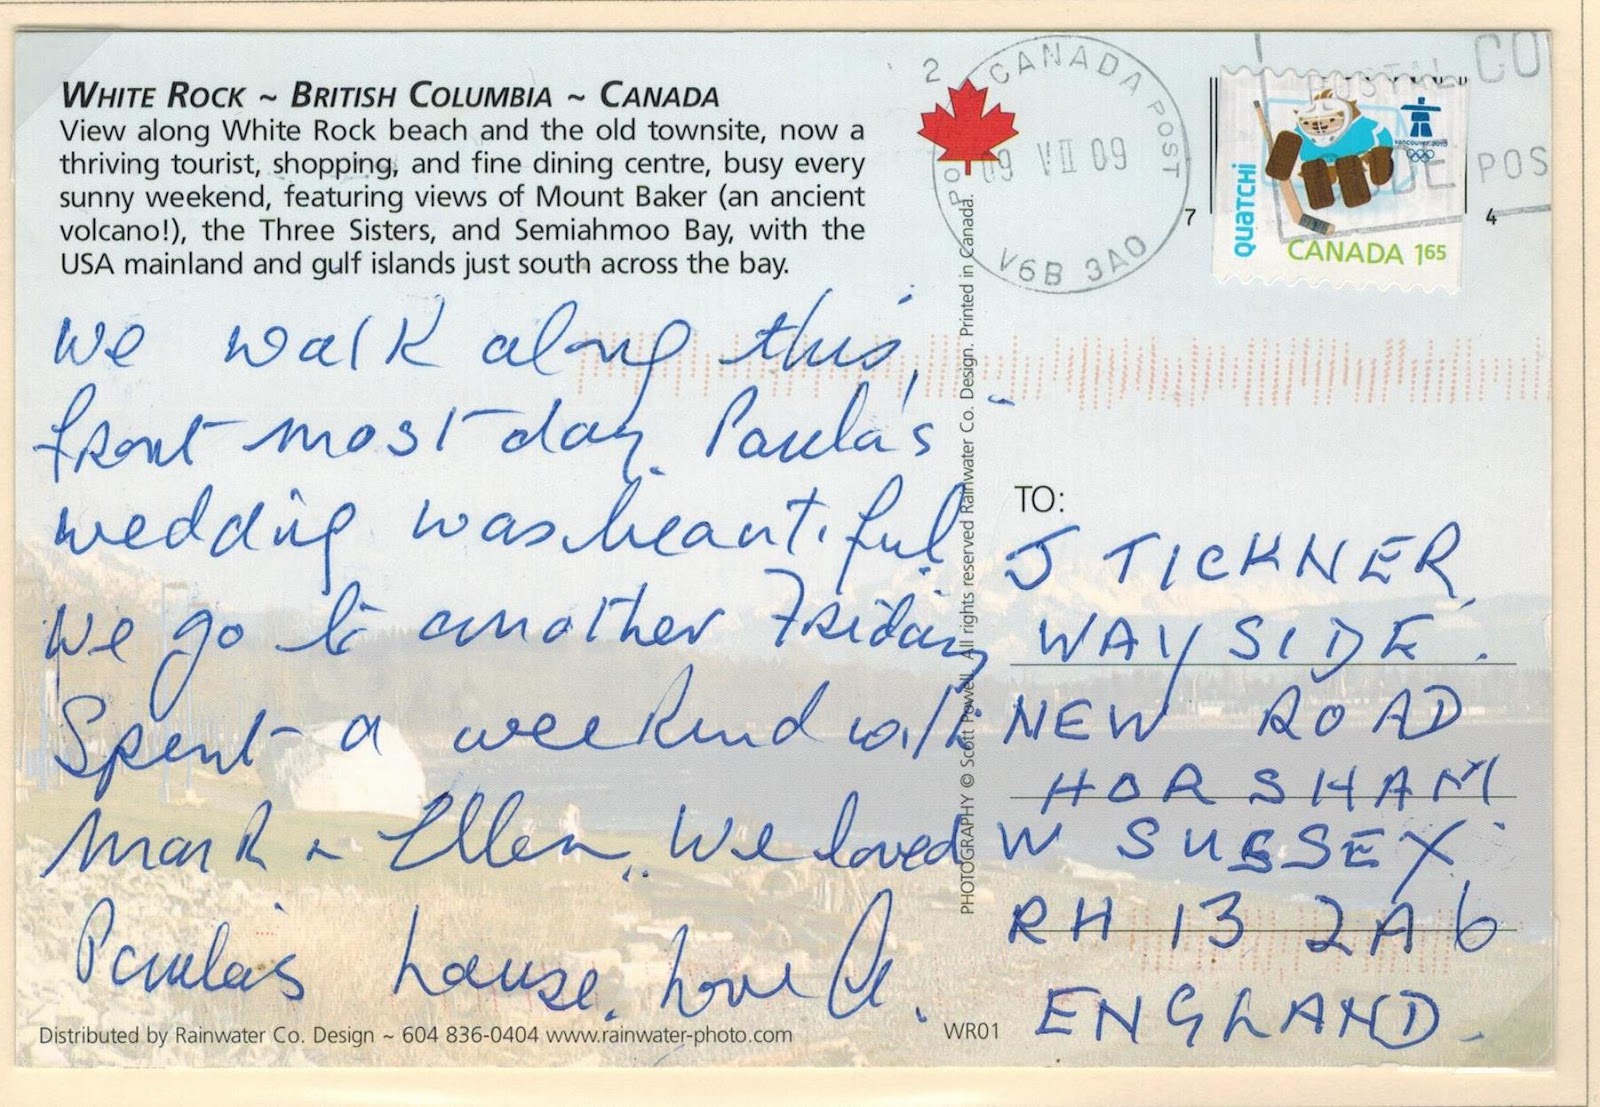 WHITE ROCK ~ BRITISH COLUMBIA ~ CANADA
View along White Rock beach and the old townsite, now a
thriving tourist, shopping, and fine dining centre, busy every
sunny weekend, featuring views of Mount Baker (an ancient
volcano!), the Three Sisters, and Semiahmoo Bay, with the
USA mainland and gulf islands just south across the bay.
We walk along this
front most day. Paula's
wedding was beautiful
We go to another Friday
Spent a weekend with
Mark & Ellen. We loved
Paula's house. Love
Distributed by Rainwater Co. Design ~ 604 836-0404 www.rainwater-photo.com
WR01
PHOTOGRAPHY © Scott Powell. All rights reserved Rainwater Co. Design. Printed in Canada.
2
CANADA POST
09 VII 09
V6B 3A0
7
4
QUATCHI
vancouver 2010
CANADA 165
POSTAL CO
DE POS
TO:
J TICKNER
WAYSIDE.
NEW ROAD
HORSHAM
W SUSSEX
RH 13 2A6
ENGLAND.